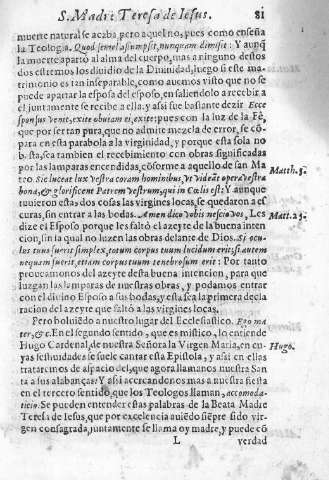 S. Madre Teresa de Iesus. 81
muerte natural se acaba, pero aquel no, pues como enseña
la Teologia. Quod semel assumpsit, nunquam dimisit: Y aunq̃
la muerte aparto al alma del cuerpo, mas a ninguno destos
dos estremos los diuidio de la Diuinidad, luego si este ma-
trimonio es tan inseparable, como auemos visto que no se
puede apartar el esposa del esposo, en saliendolo a recebir a
el juntamente se recibe a ella. y assi fue bastante dezir Ecce
sponsus venit, exite obuiam ei, exite: pues con la luz de la Fè,
que por ser tan pura, que no admite mezcla de error, se cõ-
para en esta parabola a la virginidad, y porque esta sola no
basta, sea tambien el recebimiento con obras significadas
por las lamparas encendidas, cõforme a aquello de san Ma
teo Sic luceat lux vestra coram hominibus, vt videãt opera vestra
bona, & glorificent Patrem vestrum, qui in Cœlis est: Y aunque
tuuieron estas dos cosas las virgines locas, se quedaron a es
curas, sin entrar a las bodas. Amen dico vobis nescio vos, Les
dize el Esposo porque les faltò el azeyte de la buena inten
cion, sin la qual no luzen las obras delante de Dios. Si ocu-
lus tuus fuerit simplex, totum corpus tuum lucidum erit; si autem
nequam fuerit, etiam corpus tuum tenebrosum erit: Por tanto
proueamonos del azeyte desta buena intencion, para que
luzgan las lamparas de nuestras obras, y podamos entrar
con el diuino Esposo a sus bodas, y esta sea la primera decla
racion del azeyte que saltò a las virgines locas.
Pero boluiẽdo a nuestro lugar del Ecclesiastico. Ego ma
ter, &c. En el segundo sentido, que es mistico, lo entiende
Hugo Cardenal, de nuestra Señora la Virgen Maria, en cu
yas festiuidades se suele cantar esta Epistola, y assi en ellas
trataremos de espacio del, que agora llamanos nuestra San
ta a sus alabanças: Y assi acercandonos mas a nuestra fiesta
en el tercero sentido, que los Teologos llaman, accomoda-
ticio. Se pueden entender estas palabras de la Beata Madre
Teresa de Iesus, que por excelencia auiẽdo siẽpre sido vir-
gen consagrada, juntamente se llama oy madre, y puede cõ
L verdad
Matth. 5.
Matt. 25.
Hugo.